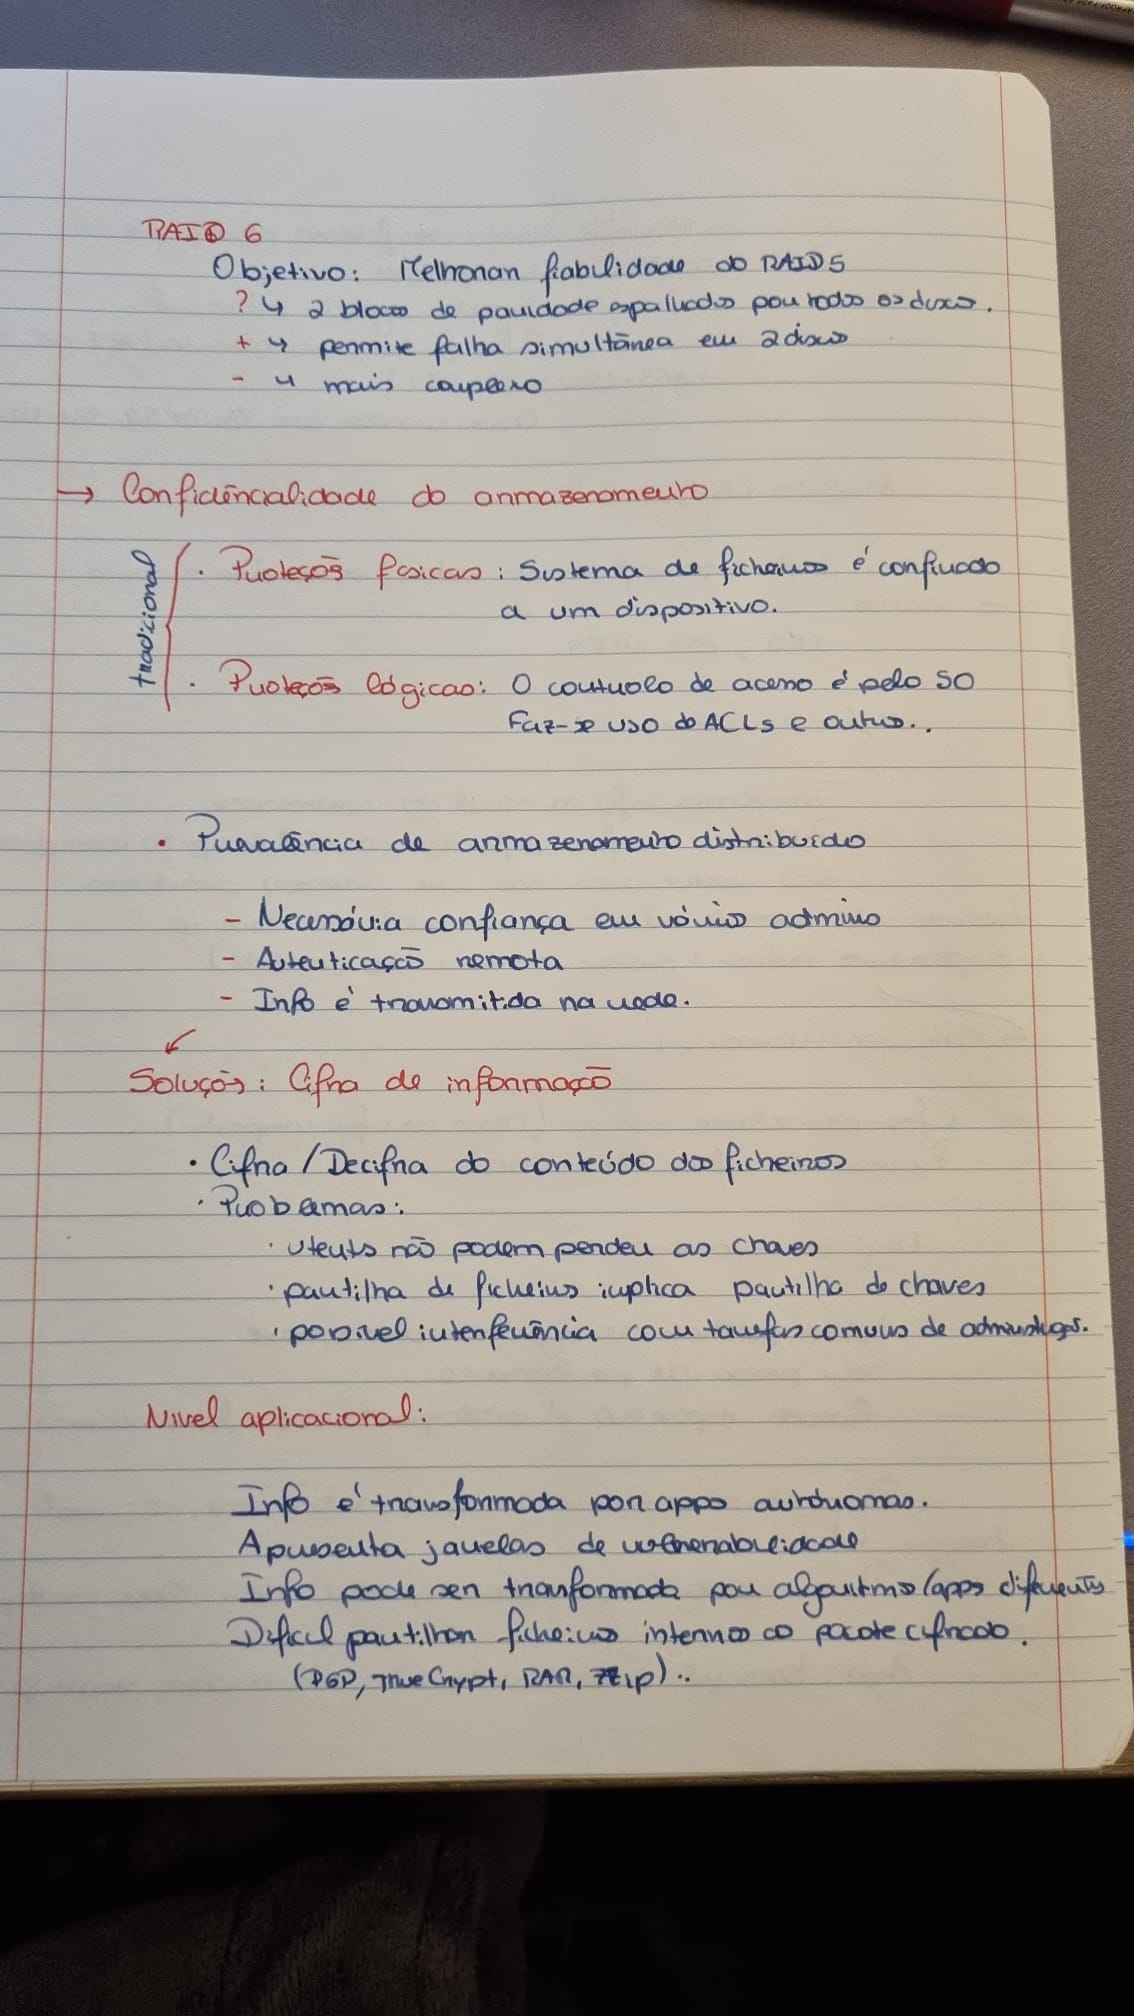 RAID 6
Objetivo: Melhorar fiabilidade do RAID5
? ↳ 2 blocos de paridade espalhados por todos os discos.
+ ↳ permite falha simultânea em 2 discos
- ↳ mais complexo
→ Confidêncialidade do armazenamento
tradicional
· Proteçõs físicas: Sistema de ficheiros é confinado
a um dispositivo.
· Proteçõs lógicas: O controlo de acesso é pelo SO
Faz-se uso de ACLs e outros..
• Prevalência de armazenamento distribuído
- Necessária confiança em vários admins
- Autenticação remota
- Info é transmitida na rede.
↙
Solução: Cifra de informação
• Cifra/Decifra do conteúdo dos ficheiros
· Problemas:
· utents não podem perder as chaves
· partilha de ficheiros implica partilha de chaves
· possivel interferência com tarefas comuns de
Nivel aplicacional:
Info é transformada por apps autónomas.
Apresenta janelas de vulnerabilidade
Info pode ser transformada por algoritmos/apps diferents
Dificil partilhar ficheiros internos ao pacote cifrado.
(PGP, TrueCrypt, RAR, 7Zip)..